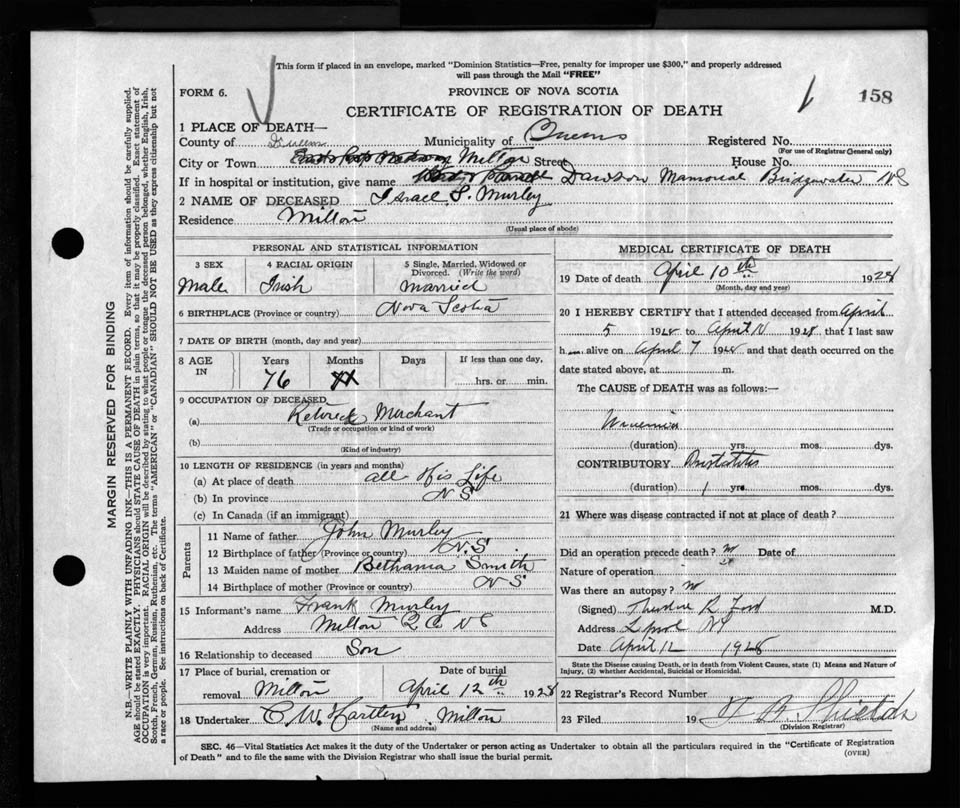 This form if placed in an envelope, marked "Dominion Statistics—Free, penalty for improper use $300," and properly addressed
will pass through the Mail "FREE"
FORM 6.
PROVINCE OF NOVA SCOTIA
158
CERTIFICATE OF REGISTRATION OF DEATH
1 PLACE OF DEATH—
County of Queens Municipality of Queens Registered No.
(For use of Registrar General only)
City or Town Milton Street House No.
If in hospital or institution, give name Dawson Mamorial Bridgewater NS
2 NAME OF DECEASED Israel S. Murley
Residence Milton
(Usual place of abode)
PERSONAL AND STATISTICAL INFORMATION
3 SEX 4 RACIAL ORIGIN 5 Single, Married, Widowed or
Divorced. (Write the word)
Male Irish Married
6 BIRTHPLACE (Province or country) Nova Scotia
7 DATE OF BIRTH (month, day and year)
8 AGE IN Years Months Days If less than one day,
76 hrs. or min.
9 OCCUPATION OF DECEASED
(a) Merchant
(Trade or occupation or kind of work)
(b)
(Kind of industry)
10 LENGTH OF RESIDENCE (in years and months)
(a) At place of death all His Life
(b) In province NS
(c) In Canada (if an immigrant)
Parents
11 Name of father John Murley
12 Birthplace of father (Province or country) N.S
13 Maiden name of mother Bethania Smith
14 Birthplace of mother (Province or country) NS
15 Informant's name Frank Murley
Address Milton Q Co NS
16 Relationship to deceased Son
17 Place of burial, cremation or Date of burial
removal Milton April 12th 1928
18 Undertaker C. W. Hartlen Milton
(Name and address)
MEDICAL CERTIFICATE OF DEATH
19 Date of death April 10th 1928
(Month, day and year)
20 I HEREBY CERTIFY that I attended deceased from April
5 1928 to April 10 1928 that I last saw
h alive on April 7 1928 and that death occurred on the
date stated above, at m.
The CAUSE of DEATH was as follows:—
Uraemia
(duration) yrs. mos. dys.
CONTRIBUTORY
(duration) 1 yrs. mos. dys.
21 Where was disease contracted if not at place of death?
Did an operation precede death? no Date of
Nature of operation
Was there an autopsy? no
(Signed) Theodore R Ford M.D.
Address Lpool NS
Date April 12 1928
State the Disease causing Death, or in death from Violent Causes, state (1) Means and Nature of
Injury, (2) whether Accidental, Suicidal or Homicidal.
22 Registrar's Record Number
23 Filed 19
(Division Registrar)
SEC. 46—Vital Statistics Act makes it the duty of the Undertaker or person acting as Undertaker to obtain all the particulars required in the "Certificate of Registration
of Death" and to file the same with the Division Registrar who shall issue the burial permit. (OVER)
MARGIN RESERVED FOR BINDING
N.B.—WRITE PLAINLY WITH UNFADING INK—THIS IS A PERMANENT RECORD. Every item of information should be carefully supplied.
AGE should be stated EXACTLY. PHYSICIANS should STATE CAUSE OF DEATH in plain terms, so that it may be properly classified. Exact statement of
OCCUPATION is very important. RACIAL ORIGIN will be described by stating to what people or tongue the deceased person belonged, whether English, Irish,
Scotch, French, German, Russian, Ruthenian, etc. The terms "AMERICAN" or "CANADIAN" SHOULD NOT BE USED as they express citizenship but not
a race or people. See instructions on back of Certificate.